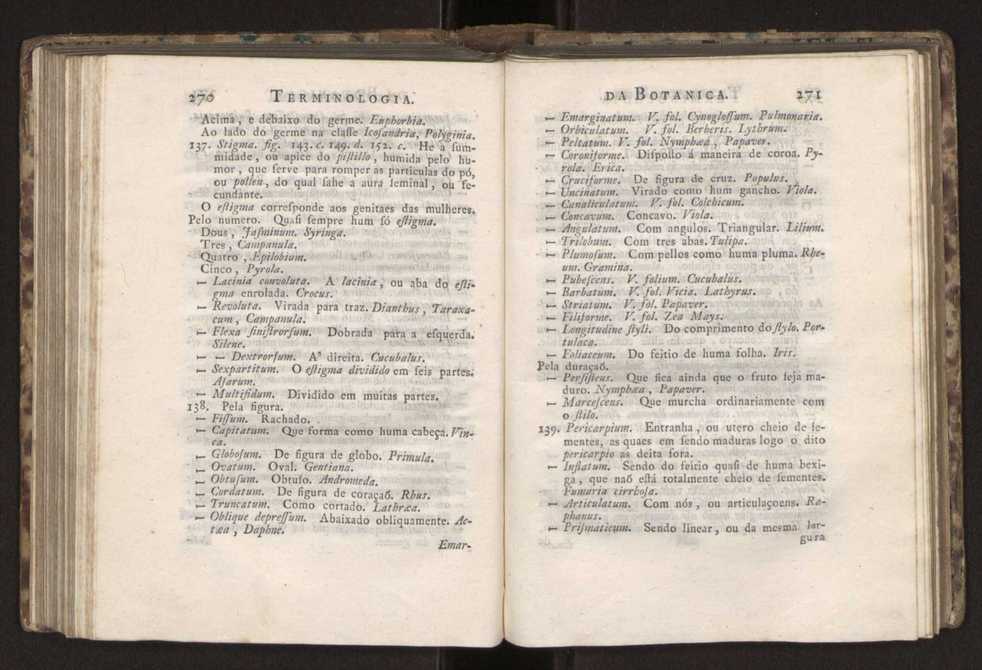 270 TERMINOLOGIA.
Acima, e debaixo do germe. Euphorbia.
Ao lado do germe na claſſe Icoſandria, Polyginia.
137. Stigma. fig. 143. c. 149. d. 152. c. He a ſum-
midade, ou apice do piſtillo, humida pelo hu-
mor, que ſerve para romper as particulas do pó,
ou pollen, do qual ſahe a aura ſeminal, ou fe-
cundante.
O eſtigma correſponde aos genitaes das mulheres.
Pelo numero. Quaſi ſempre hum ſó eſtigma.
Dous, Jaſminum. Syringa.
Tres, Campanula.
Quatro, Epilobium.
Cinco, Pyrola.
— Lacinia convoluta. A lacinia, ou aba do eſti-
gma enrolada. Crocus.
— Revoluta. Virada para traz. Dianthus, Taraxa-
cum, Campanula.
— Flexa ſiniſtrorſum. Dobrada para a eſquerda.
Silene.
— — Dextrorſum. A' direita. Cucubalus.
— Sexpartitum. O eſtigma dividido em ſeis partes.
Aſarum.
— Multifidum. Dividido em muitas partes.
138. Pela figura.
— Fiſſum. Rachado.
— Capitatum. Que forma como huma cabeça. Vin-
ca.
— Globoſum. De figura de globo. Primula.
— Ovatum. Oval. Gentiana.
— Obtuſum. Obtuſo. Andromeda.
— Cordatum. De figura de coraçaõ. Rhus.
— Truncatum. Como cortado. Lathræa.
— Oblique depreſſum. Abaixado obliquamente. Ac-
tæa, Daphne.
Emar-
DA BOTANICA. 271
— Emarginatum. V. fol. Cynogloſſum. Pulmonaria.
— Orbiculatum. V. fol. Berberis. Lythrum.
— Peltatum. V. fol. Nymphæa, Papaver.
— Coroniforme. Diſpoſto á maneira de coroa. Py-
rola. Erica.
— Cruciforme. De figura de cruz. Populus.
— Uncinatum. Virado como hum gancho. Viola.
— Canaliculatum. V. fol. Colchicum.
— Concavum. Concavo. Viola.
— Angulatum. Com angulos. Triangular. Lilium.
— Trilobum. Com tres abas. Tulipa.
— Plumoſum. Com pellos como huma pluma. Rhe-
um. Gramina.
— Pubeſcens. V. folium. Cucubalus.
— Barbatum. V. fol. Vicia. Lathyrus.
— Striatum. V. fol. Papaver.
— Filiforme. V. fol. Zea Mays.
— Longitudine ſtyli. Do comprimento do ſtylo. Por-
tulaca.
— Foliaceum. Do feitio de huma folha. Iris.
Pela duraçaõ.
— Perſiſteus. Que fica ainda que o fruto ſeja ma-
duro. Nymphæa, Papaver.
— Marceſcens. Que murcha ordinariamente com
o ſtilo.
139. Pericarpium. Entranha, ou utero cheio de ſe-
mentes, as quaes em ſendo maduras logo o dito
pericarpio as deita fora.
— Inflatum. Sendo do feitio quaſi de huma bexi-
ga, que naõ eſtá totalmente cheio de ſementes.
Fumaria cirrhoſa.
— Articulatum. Com nós, ou articulaçoens. Ra-
phanus.
— Priſmaticum. Sendo linear, ou da mesma lar-
gura